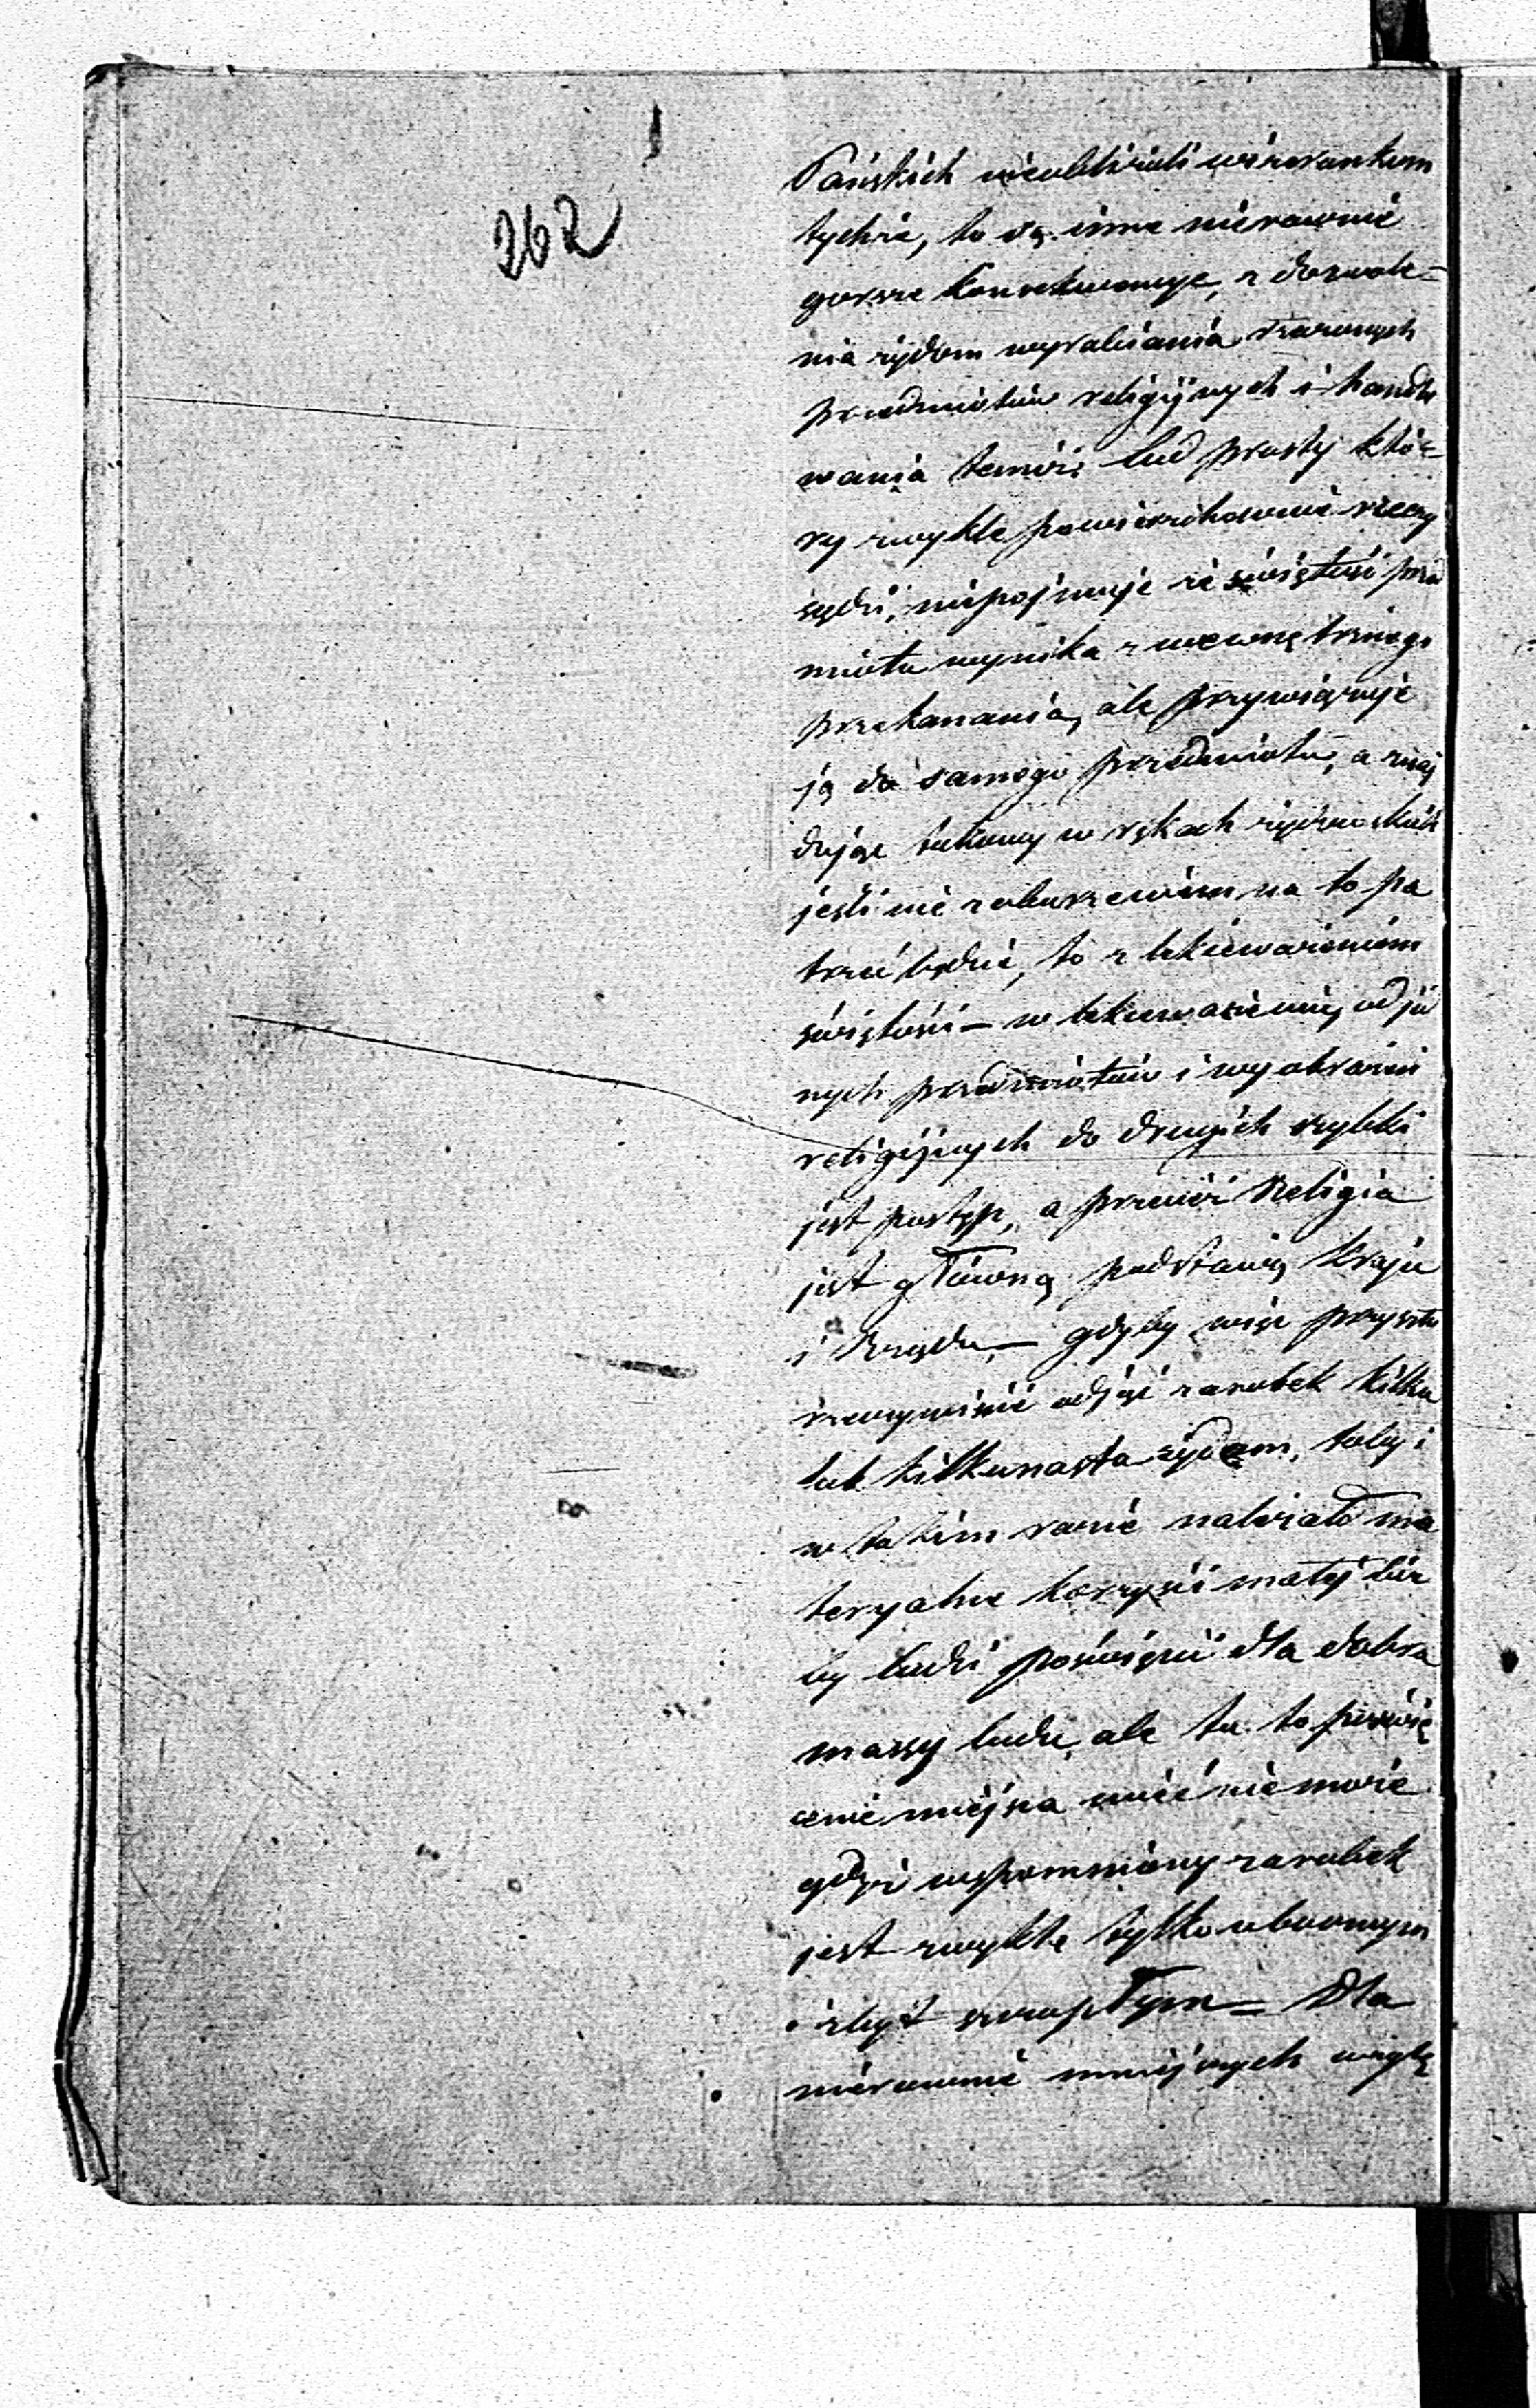 262
Pańskich nieubliżali wizerunkom
tychże, to są inne nierównie
gorsze konsekwencye, z dozwole=
nia żydom wyrabiania rzeczonych
przedmiotów religijnych i handlo
wania temiż; lud prosty któ=
ry zwykle powierzchownie rzeczy
sądzi, niepojmuje że świętość przed
miotu wynika z wewnętrznego
przekonania, ale przywiązuje
ją do samego przedmiotu, a znaj
dując takowy w rękach żydowskich
jeśli nie z oburzeniem na to pa
trzeć będzie, to z lekceważeniem
świętości – w lekceważeniu od je
nych przedmiotów i wyobrażeń
religijnych do drugich szybki
jest postęp, a przecież Religia
jest główną podstawą kraju
i Rządu, – gdyby więc przyszło
rzeczywiście odjąć zarobek kilku
lub kilkunastu żydom, toby i
w takim razie należało ma
teryalne korzyści małej licz
by ludzi poświęcić dla dobra
massy ludu, ale tu to poświę
cenie miejsca mieć nie może
gdyż wspomniony zarobek
jest zwykle tylko ubocznym
i zbyt szczupłym = Dla
nierównie mniejszych wzglę